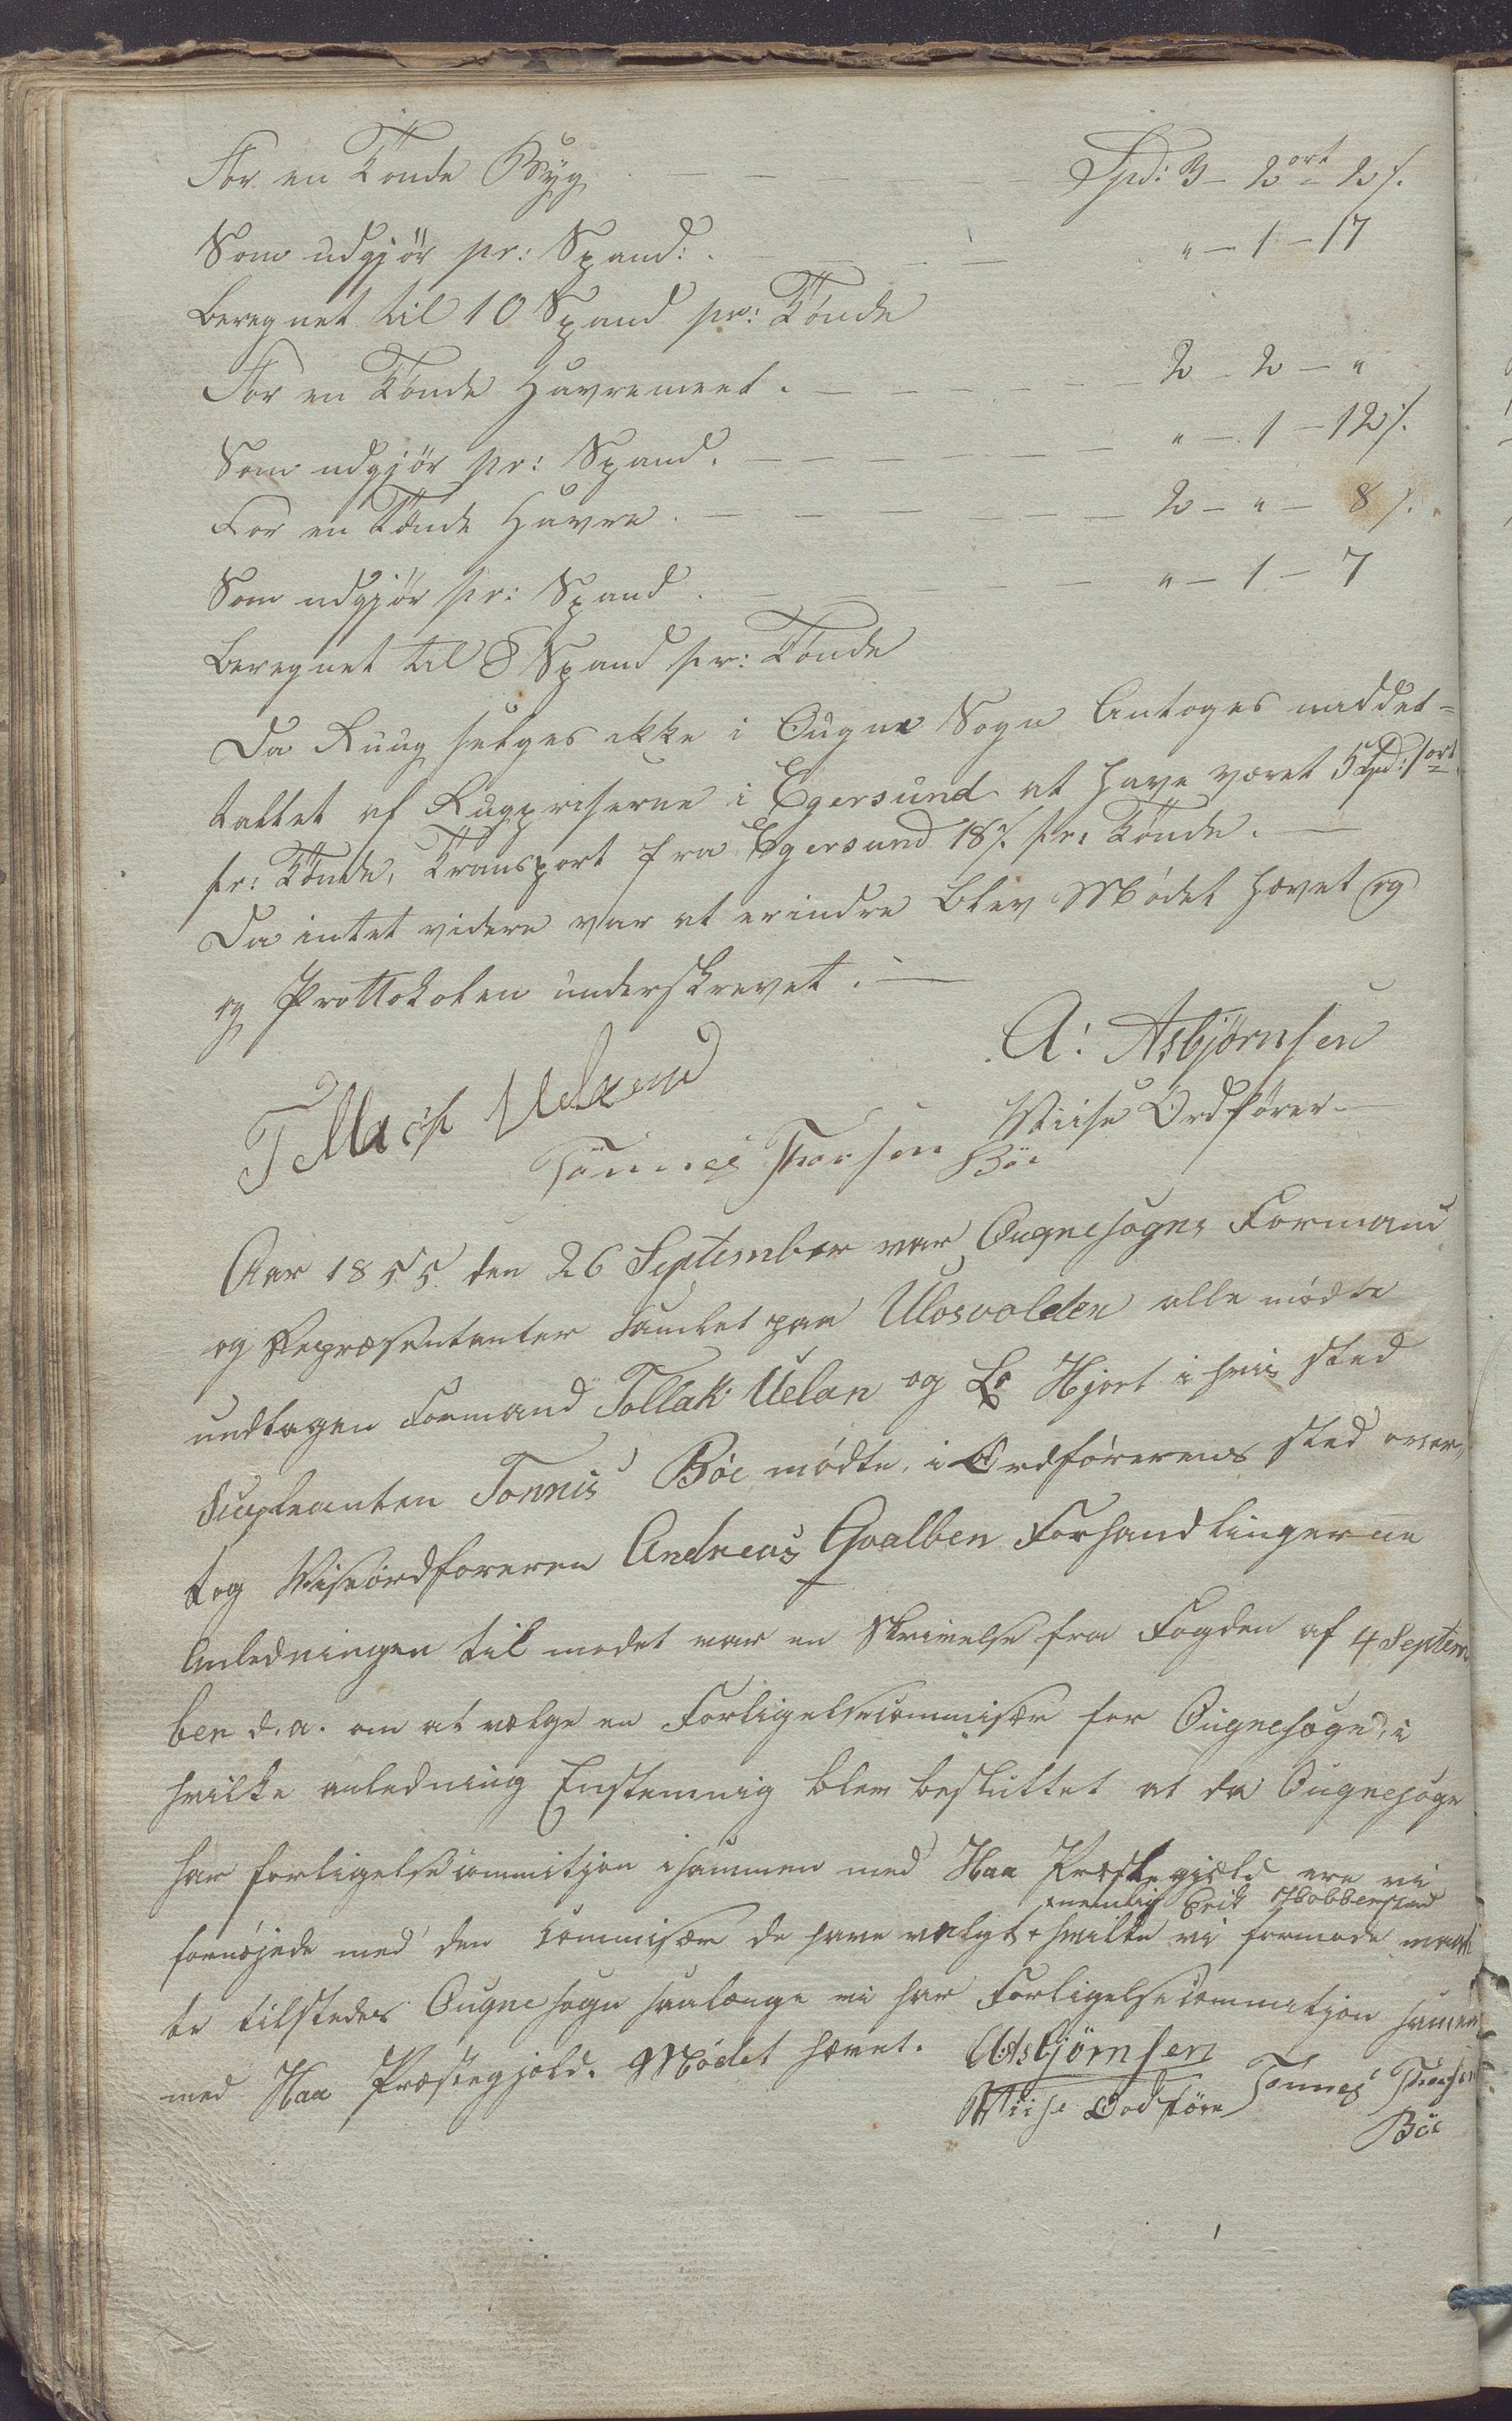 For en Tønde Byg. — — — — — Spd: 3 – 2 ort – 2 s.
Som udgjör pr: Spand: . — — — — " – 1 – 17
beregnet til 10 Spand pr: Tønde
For en Tønde Havremeel . — — — — 2 – 2 – "
Som udgjör pr: Spand . — — — — — " – 1 – 12 s.
For en Tønde Havre . — — — — — 2 – " – 8 s.
Som udgjör pr: Spand . — — — — " – 1 – 7
beregnet til 8 Spand pr: Tønde
Da Ruug selges ikke i Ougne Sogn Antoges middel-
tallet af Rugpriserne i Egersund at have været 5 Spd: 1 ort
pr: Tønde, Transport fra Egersund 18 s. pr: Tønde. —
Da intet videre var at erindre blev Mødet hævet og
og Prottokolen underskrevet. —
A: Asbjørnsen
Viise Ordfører —
Tönnes Thorsen Böe
Aar 1855 den 26 September var Ougnesogns Formænd
og Repræsentanter samlet paa Ulosvolden alle mødte
undtagen Formand Tollak Uelan og Hjort i hvis sted
Supleanten Tonnis Böe mødte, i Ordførerens sted over,,
tog Viseordføreren Andreas Qvalben Forhandlingerne
Anledningen til mødet var en Skrivelse fra Fogden af 4 Septem
ber d. a. om at vælge en Forligelsecommisær for Ougnesogn, i
hvilke anledning Enstemmig blev besluttet at da Ougnesogn
har forligelsecommitsjon isammen med Haa Præstegjæld ere vi
nemlig Erik
fornøjede med den Commisær de have valgt + hvilke vi formode
te tilstedes Ougnesogn saalænge vi har Forligelsecommitsjon
med Haa Præstegjæld. Mødet hævet. A Asbjörnsen
Viise Ordföre Tönnes Thorsen
Böe